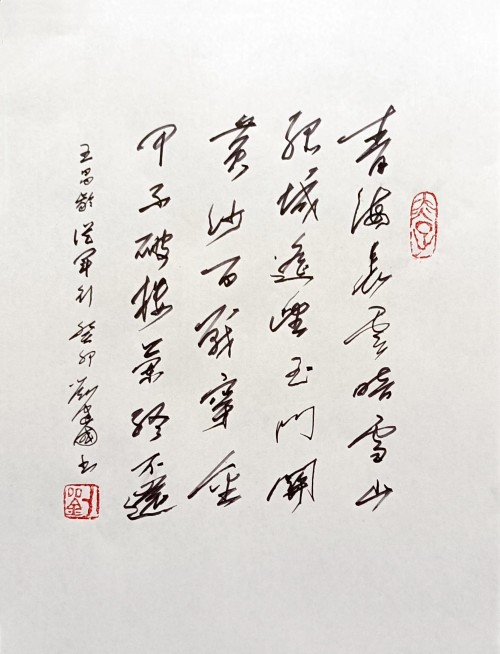 青海長雲暗雪山
孤城遙望玉門關
黄沙百戰穿金
甲不破樓蘭終不還
王昌齡從軍行 癸卯 劉國书